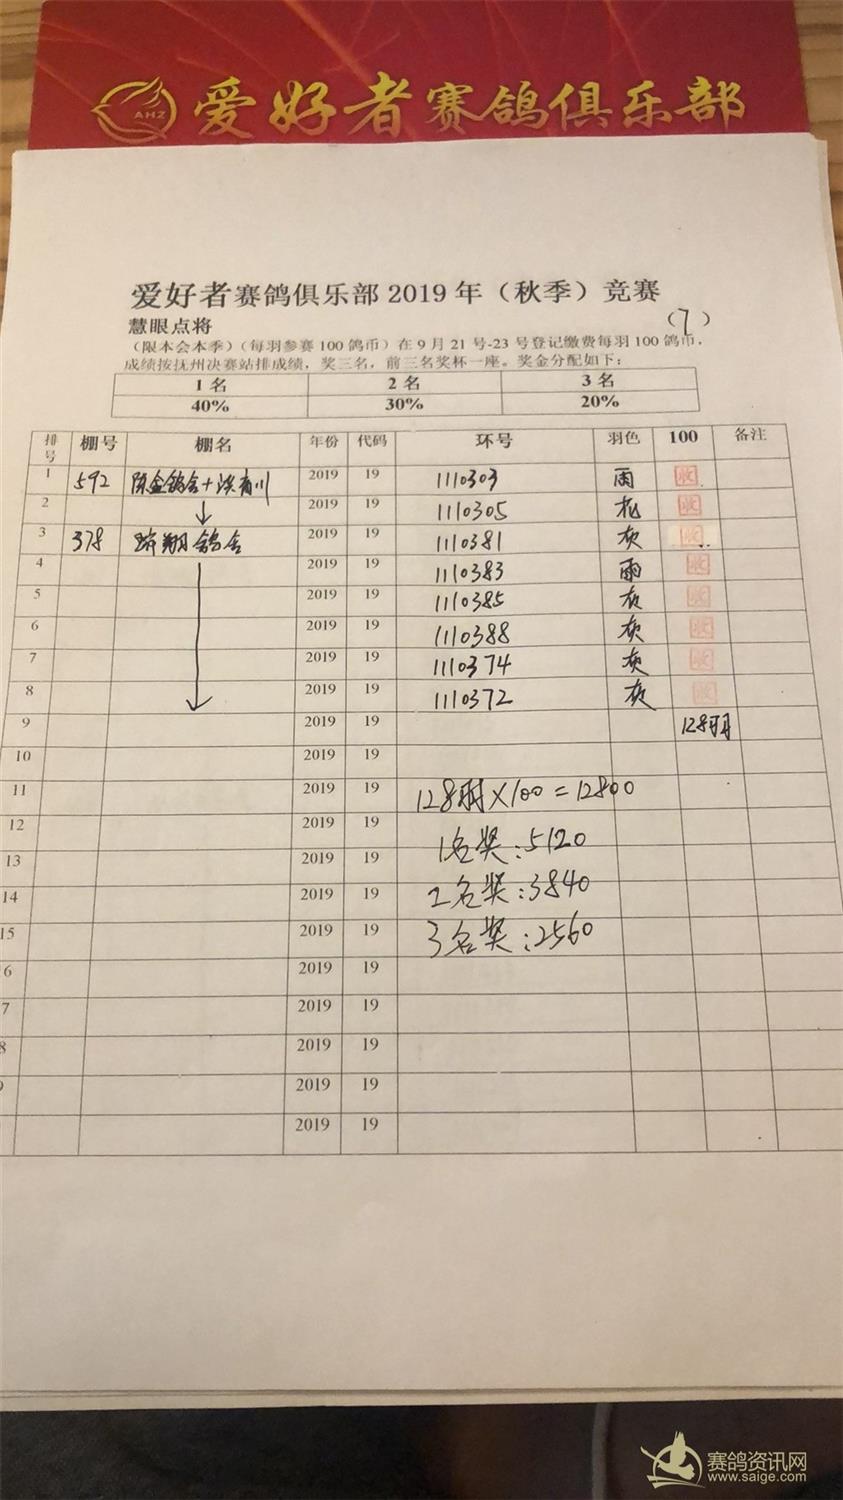 AHZ 爱好者赛鸽俱乐部
爱好者赛鸽俱乐部 2019 年（秋季）竞赛
慧眼点将 (7)
（限本会本季）（每羽参赛 100 鸽币）在 9 月 21 号-23 号登记缴费每羽 100 鸽币，
成绩按抚州决赛站排成绩，奖三名，前三名奖杯一座。奖金分配如下：
1 名 2 名 3 名
40% 30% 20%
排号 棚号 棚名 年份 代码 环号 羽色 100 备注
1 592 陈金鸽舍+洪有川 2019 19 1110303 雨 收
2 2019 19 1110305 花 收
3 378 翔鸽舍 2019 19 1110381 灰 收
4 2019 19 1110383 雨 收
5 2019 19 1110385 灰 收
6 2019 19 1110388 灰 收
7 2019 19 1110374 灰 收
8 2019 19 1110372 灰 收
9 2019 19 128羽
10 2019 19
11 2019 19 128羽×100=12800
12 2019 19 1名奖:5120
13 2019 19
14 2019 19 2名奖:3840
15 2019 19 3名奖:2560
6 2019 19
7 2019 19
8 2019 19
9 2019 19
2019 19
赛鸽资讯网
www.saige.com